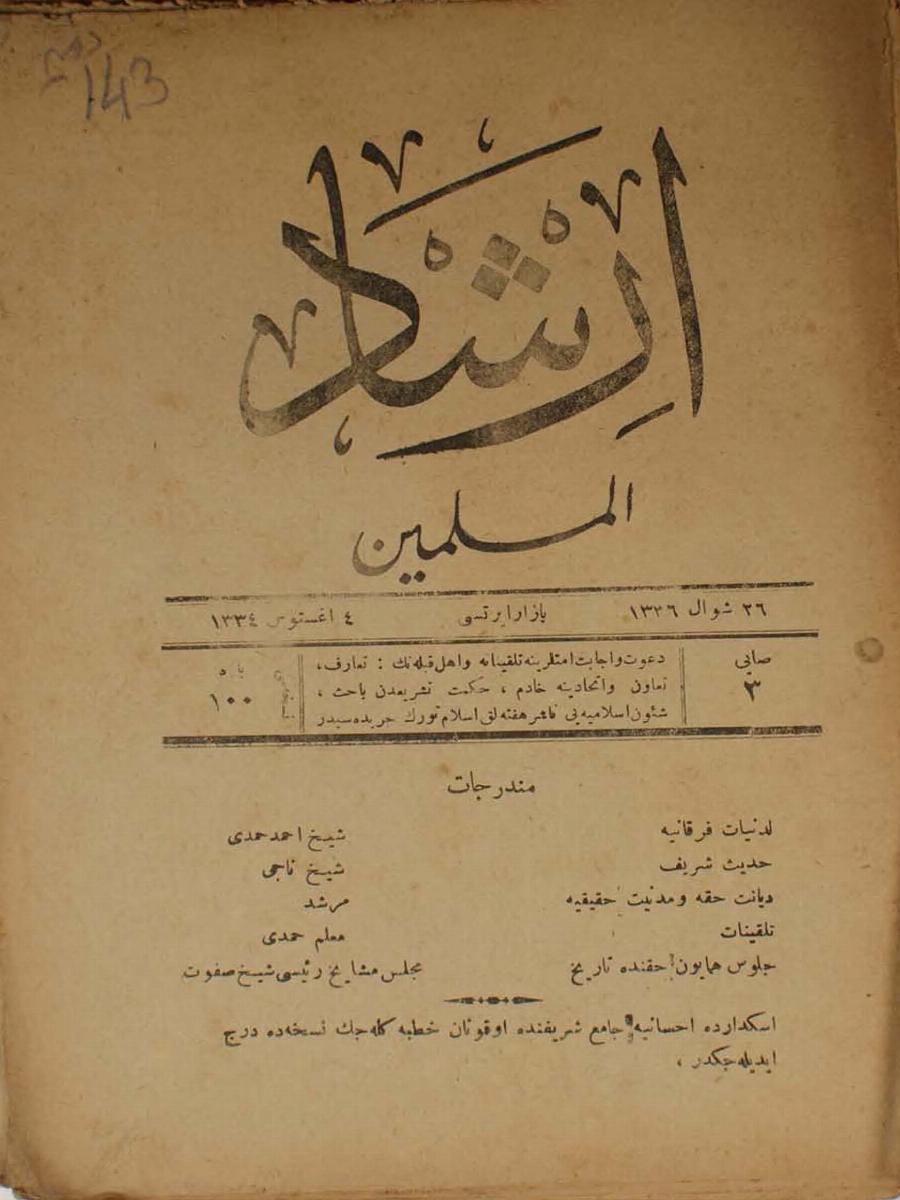 143
ارشاد
المسلمين
٢٦ شوال ١٣٣٦ بازار ايرتسى ٤ اغستوس ١٣٣٤
صايى ٣
دعوت واجابت امتلرينه تلقيناته واهل قبله‌نك : تعارف،
تعاون واتحادينه خادم ، حكمت تشريعدن باحث ،
شئون اسلاميه‌يى ناشر هفته‌لق اسلام تورك جريده‌سيدر
پاره ١٠٠
مندرجات
لدنيات فرقانيه شيخ احمد حمدى
حديث شريف شيخ ناجى
ديانت حقه ومدنيت حقيقيه مرشد
تلقينات معلم حمدى
جلوس همايون حقنده تاريخ مجلس مشايخ رئيسى شيخ صفوت
اسكدارده احسانيه جامع شريفنده اوقونان خطبه كله‌جك نسخه‌ده درج
ايديله‌جكدر ،